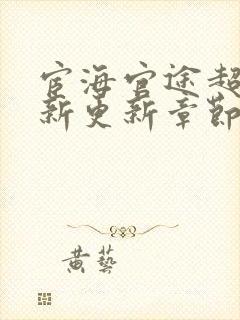 宦海官途超
新更新章節
黄藝